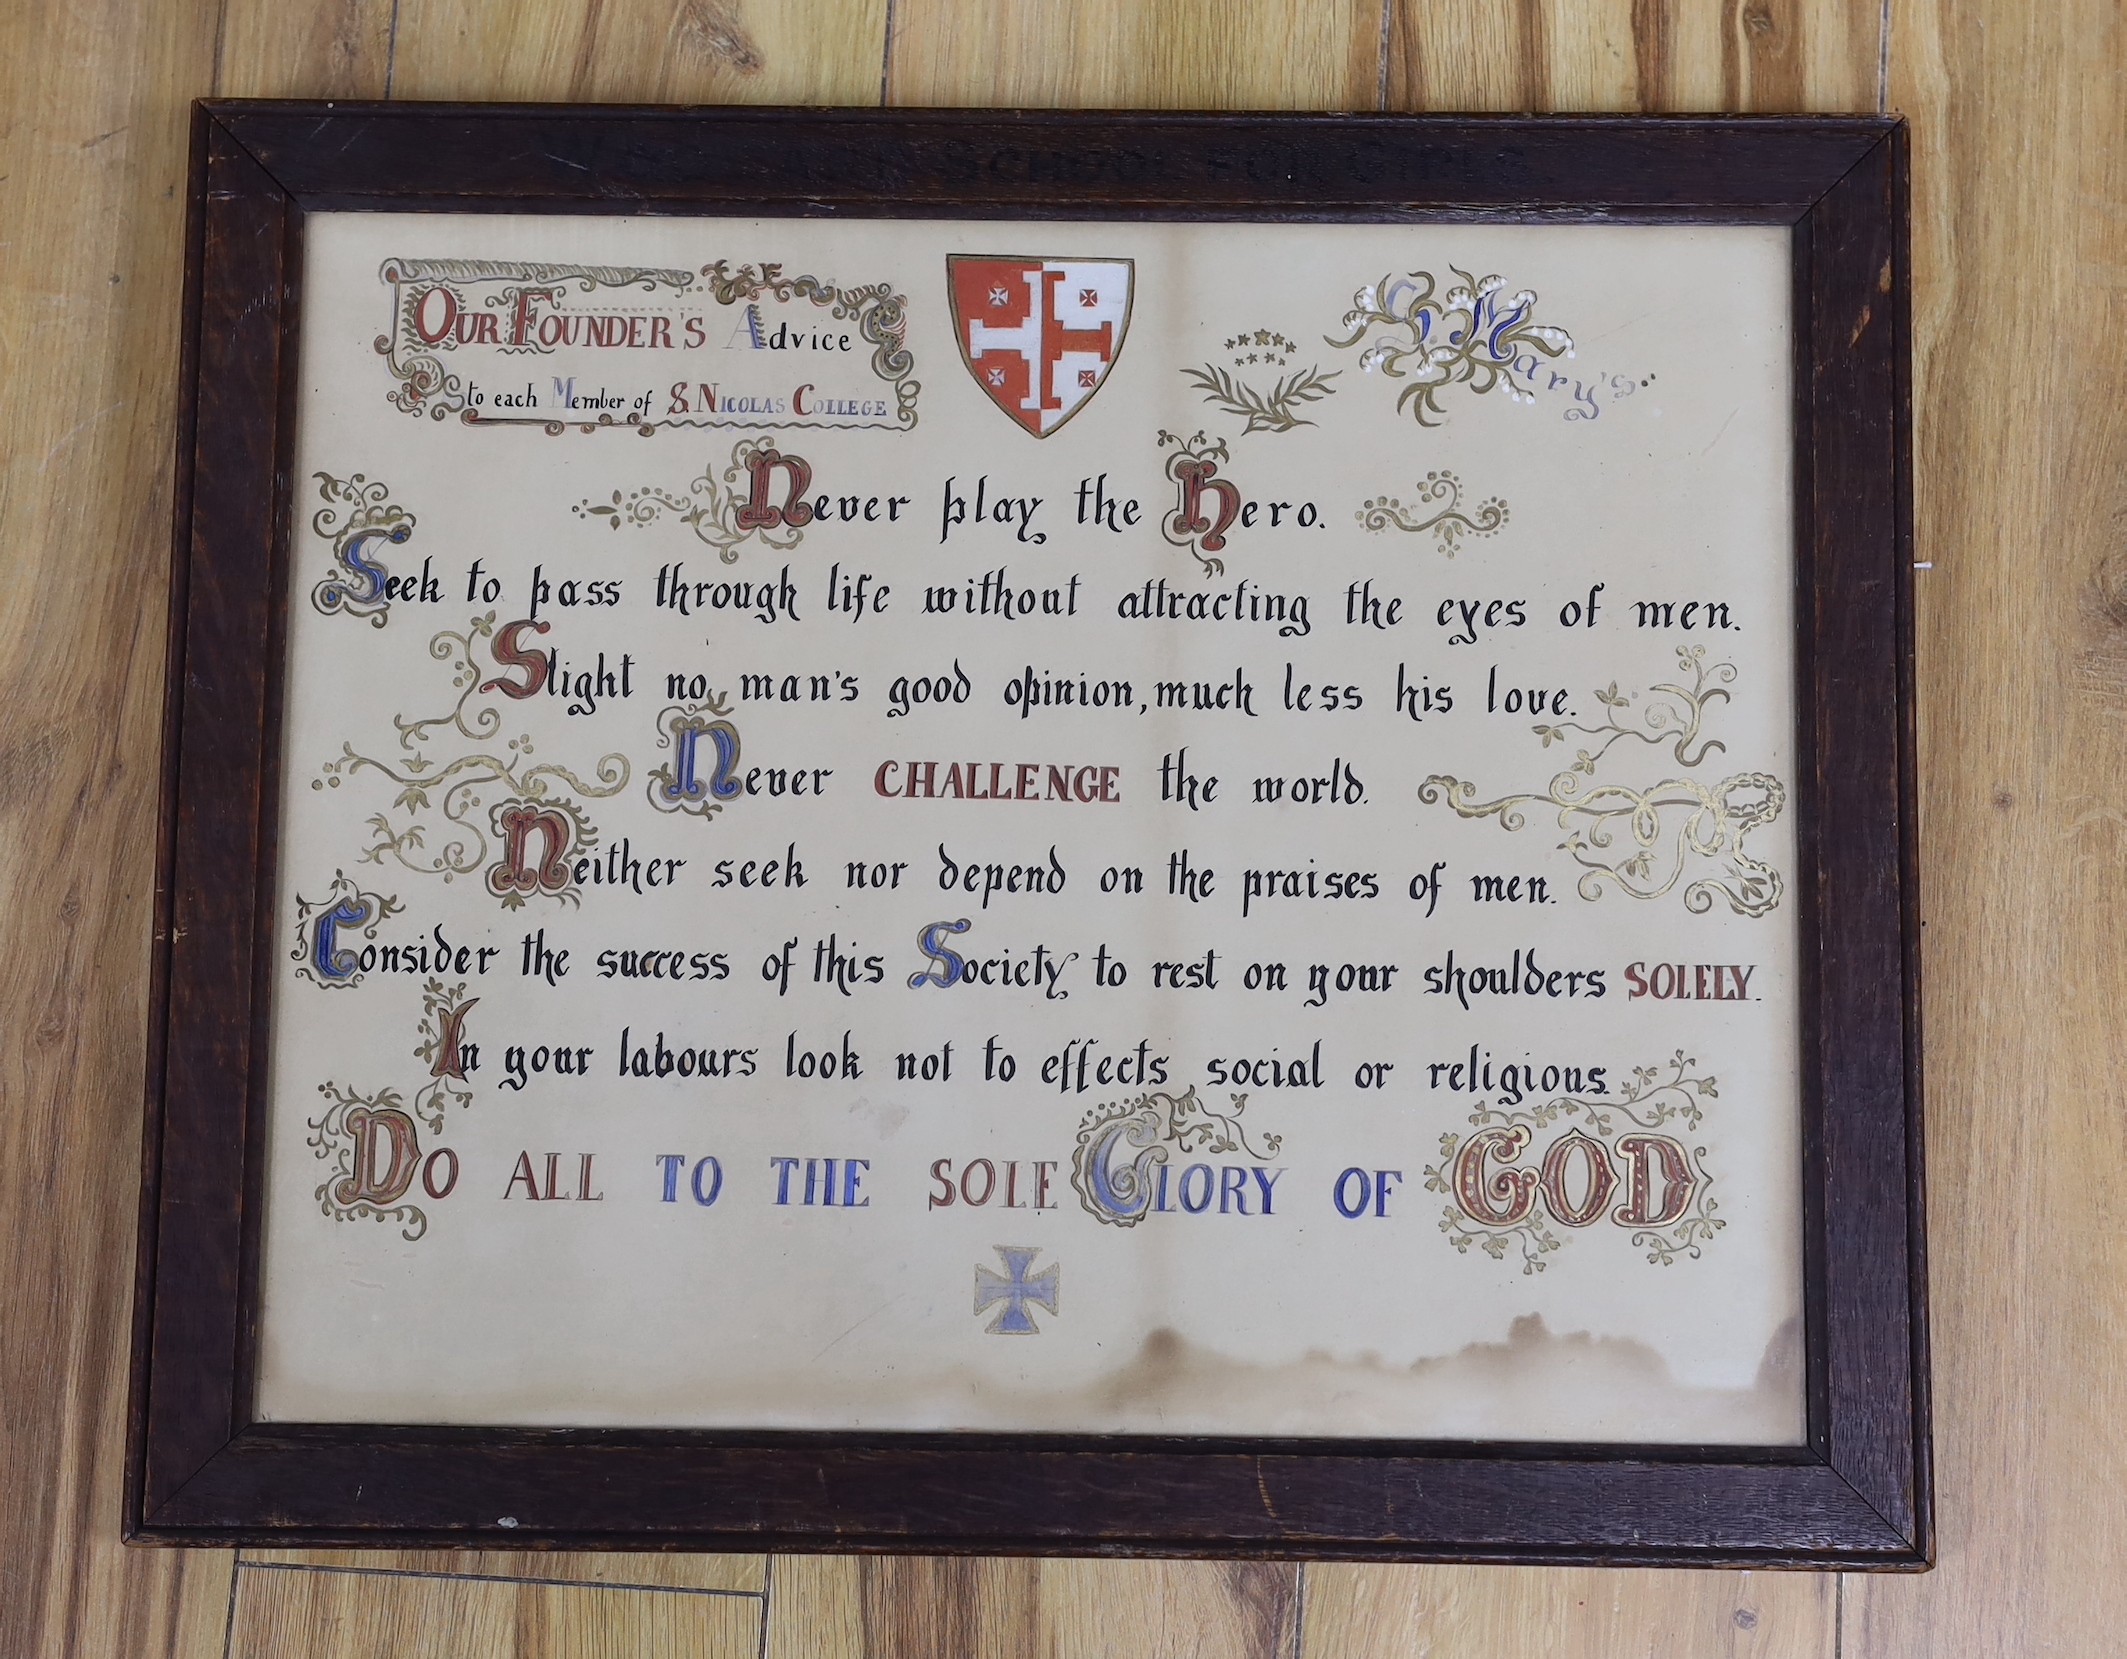 SCHOOL FOR GIRLS
OUR FOUNDER'S Advice
to each Member of S. NICOLAS COLLEGE
S. Mary's
Never play the Hero.
Seek to pass through life without attracting the eyes of men.
Slight no man's good opinion, much less his love.
Never CHALLENGE the world.
Neither seek nor depend on the praises of men.
Consider the success of this Society to rest on your shoulders SOLELY.
In your labours look not to effects, social or religious.
DO ALL TO THE SOLE GLORY OF GOD